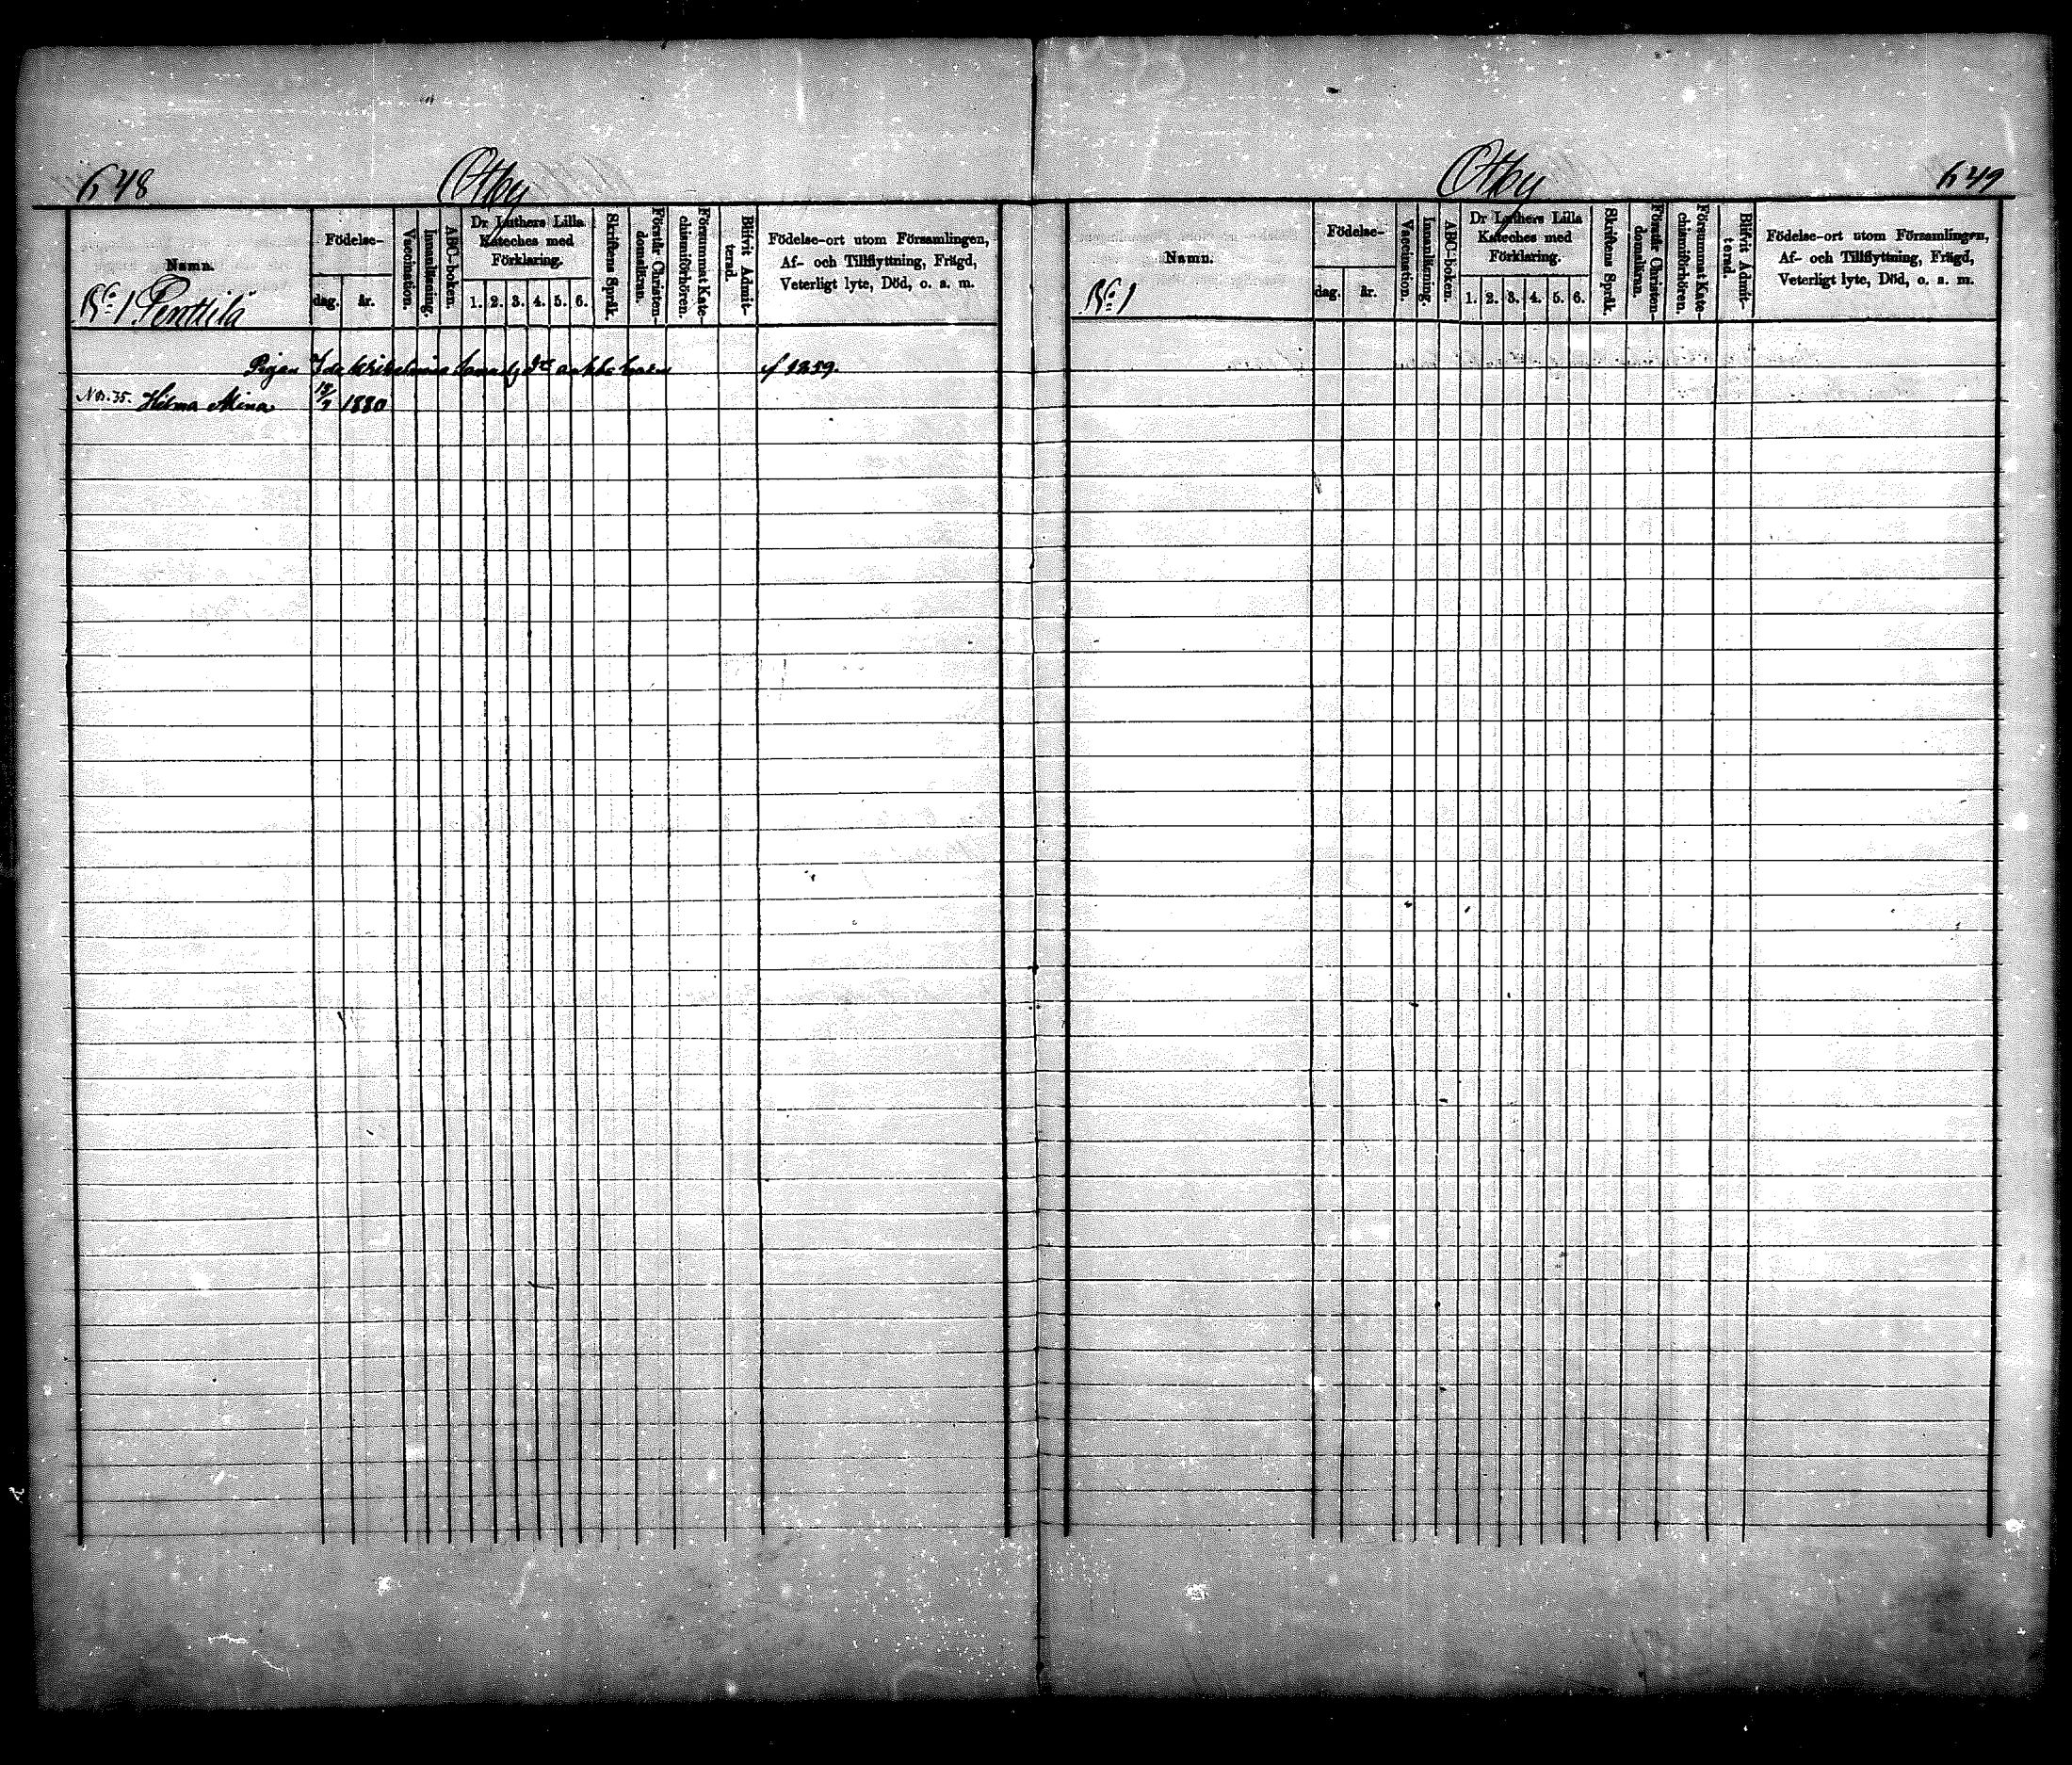 648
Otby
Namn.
Födelse-
dag.
år.
Vaccination.
Innanläsning.
ABC-boken.
Dr Luthers Lilla
Kateches med
Förklaring.
1. 2. 3. 4. 5. 6.
Skriftens Språk.
Förstår Christen-
domsläran.
Försummat Kate-
chismiförhören.
Blifvit Admit-
terad.
Födelse-ort utom Församlingen,
Af- och Tillflyttning, Frägd,
Veterligt lyte, Död, o. s. m.
No 1 Penttilä
Pigan Ida Wilhelmina d:r barn f 1259.
No. 35. Hilma Mina 1880
Otby
649
Namn.
Födelse-
dag.
år.
Vaccination.
Innanläsning.
ABC-boken.
Dr Luthers Lilla
Kateches med
Förklaring.
1. 2. 3. 4. 5. 6.
Skriftens Språk.
Förstår Christen-
domsläran.
Försummat Kate-
chismiförhören.
Blifvit Admit-
terad.
Födelse-ort utom Församlingen,
Af- och Tillflyttning, Frägd,
Veterligt lyte, Död, o. s. m.
No 1